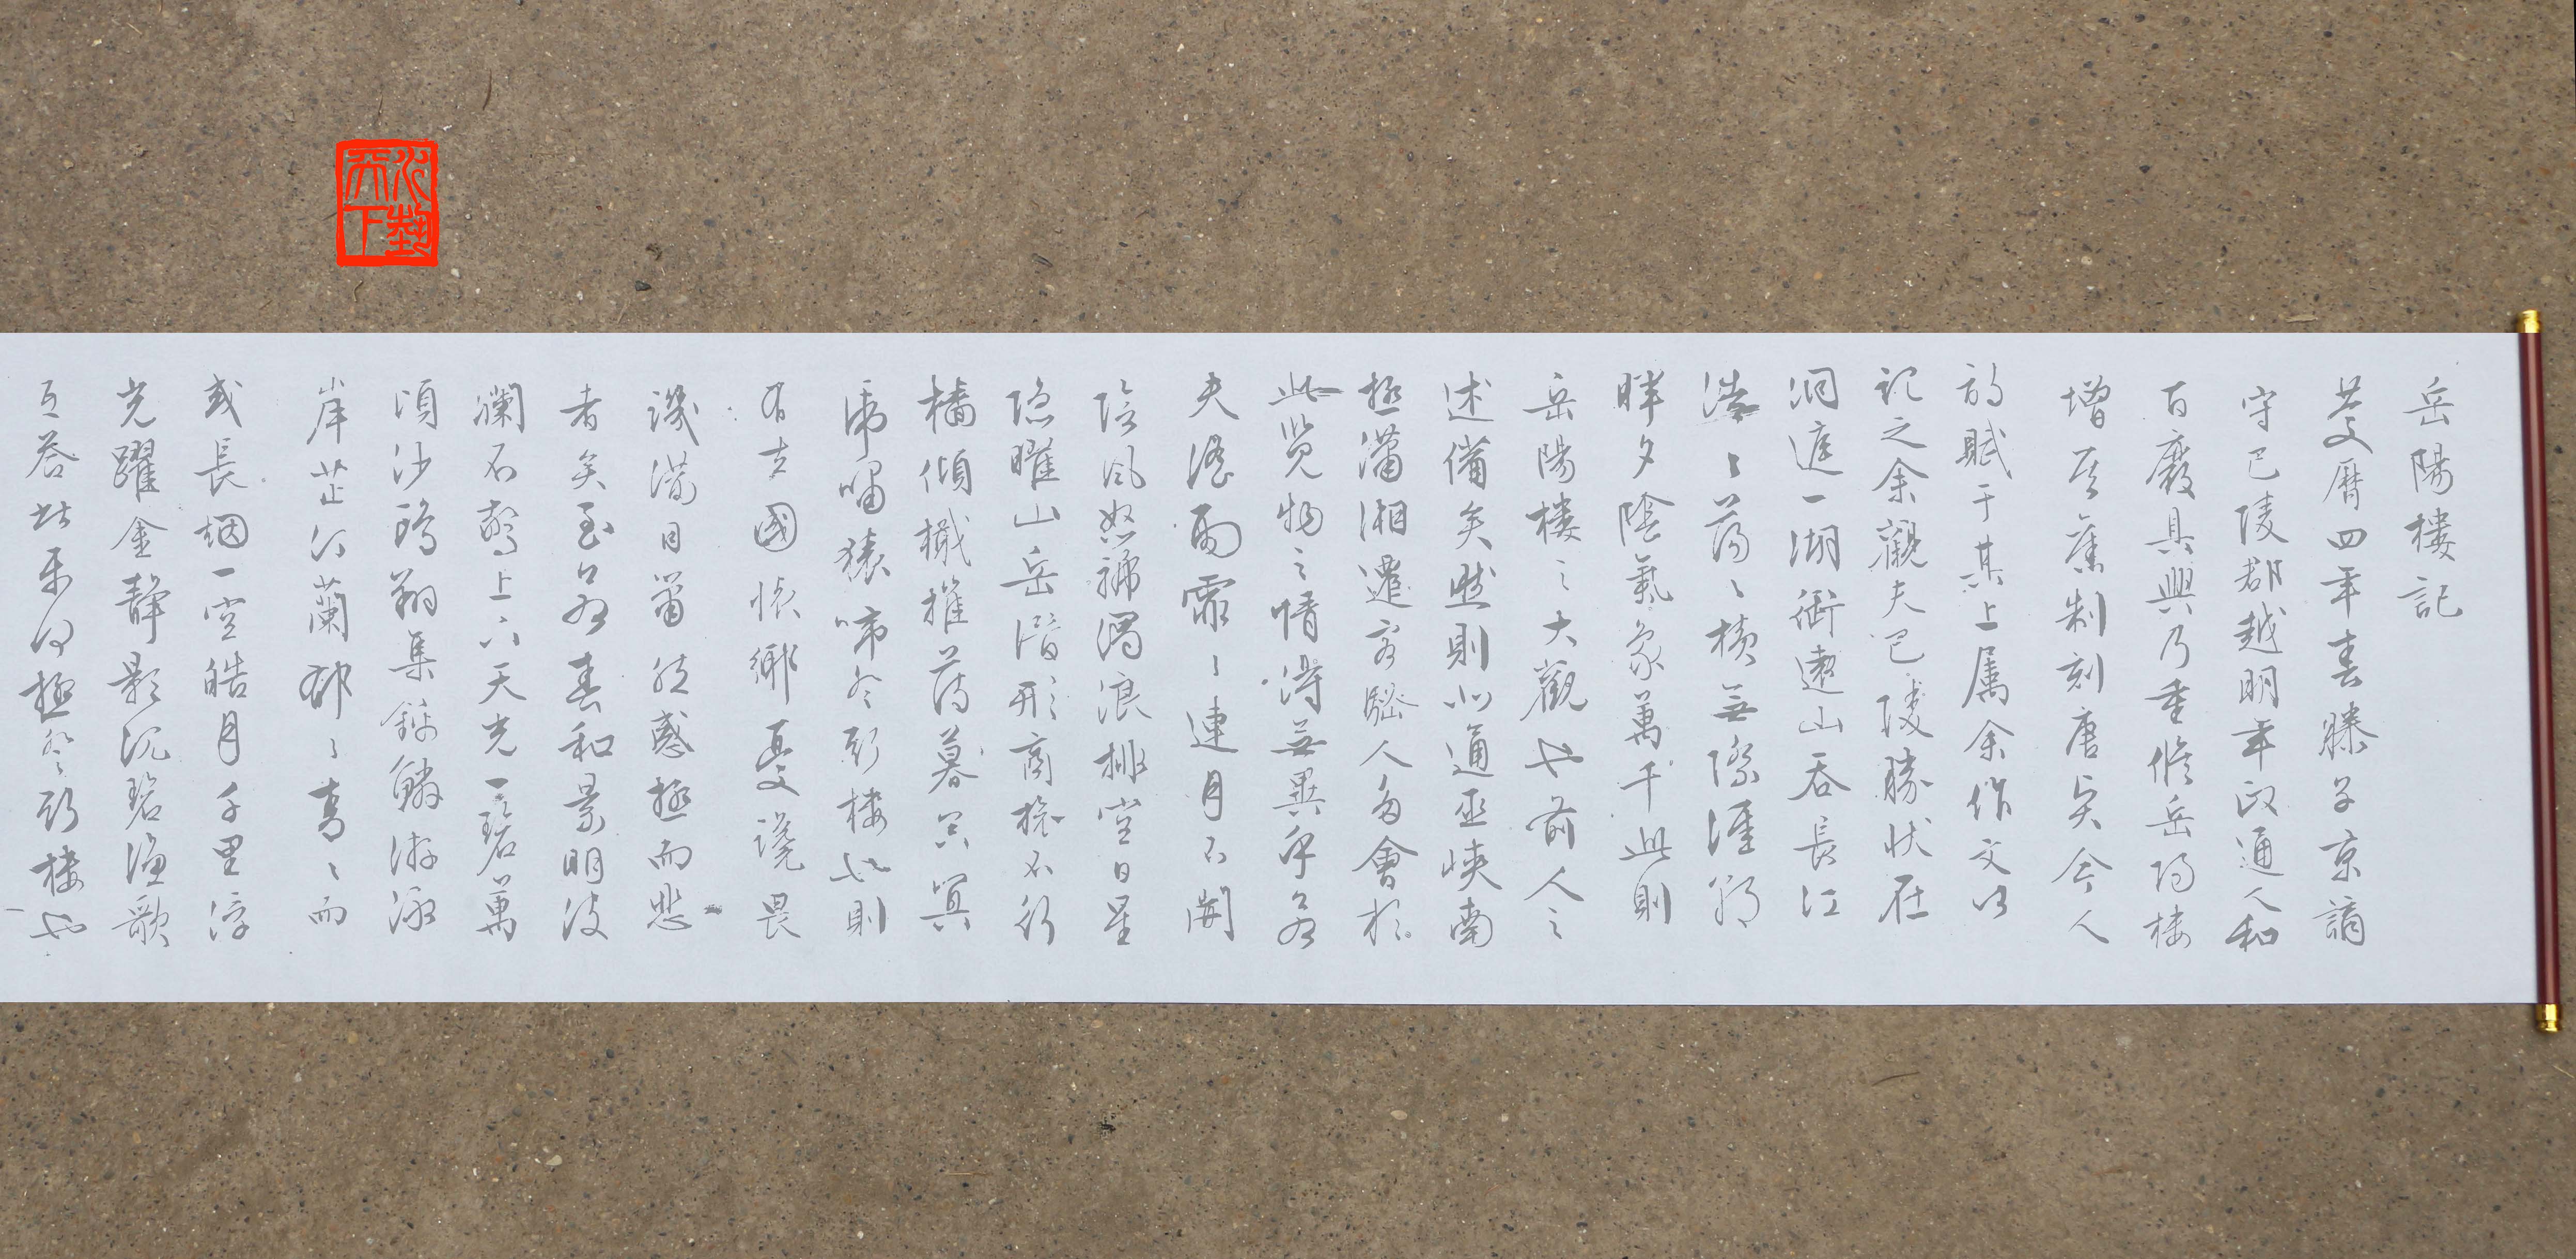 岳陽樓記
慶曆四年春滕子京謫
守巴陵郡越明年政通人和
百廢具興乃重修岳陽樓
增其舊制刻唐賢今人
詩賦于其上屬余作文以
記之余觀夫巴陵勝狀在
洞庭一湖銜遠山吞長江
浩々蕩々橫無際涯朝
暉夕陰氣象萬千此則
岳陽樓之大觀也前人之
述備矣然則北通巫峽南
極瀟湘遷客騷人多會於
此覽物之情得無異乎若
夫淫雨霏々連月不開
陰風怒號濁浪排空日星
隱曜山岳潛形商旅不行
檣傾檝摧薄暮冥冥
虎嘯猿啼登斯樓也則
有去國懷鄉憂讒畏
譏滿目蕭然感極而悲
者矣至若春和景明波
瀾不驚上下天光一碧萬
頃沙鷗翔集錦鱗游泳
岸芷汀蘭郁々青々而
或長烟一空皓月千里浮
光躍金靜影沉碧漁歌
互答此樂何極登斯樓也
天下